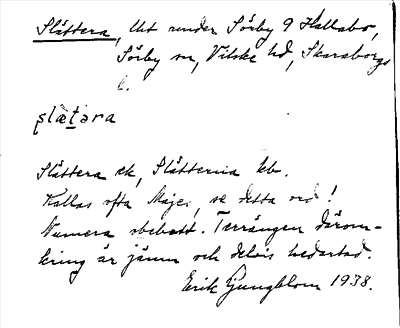 Slättera, lht under Sörby 9 Hallabo,
Sörby sn, Vilske hd, Skaraborgs
l.
slät̠əra
Slättera ek, Slätterna kb.
Kallas ofta Maje, se detta ord!
Numera obebott. Terrängen därom-
kring är jämn och delvis hedartad.
Erik Ljungblom 1938.